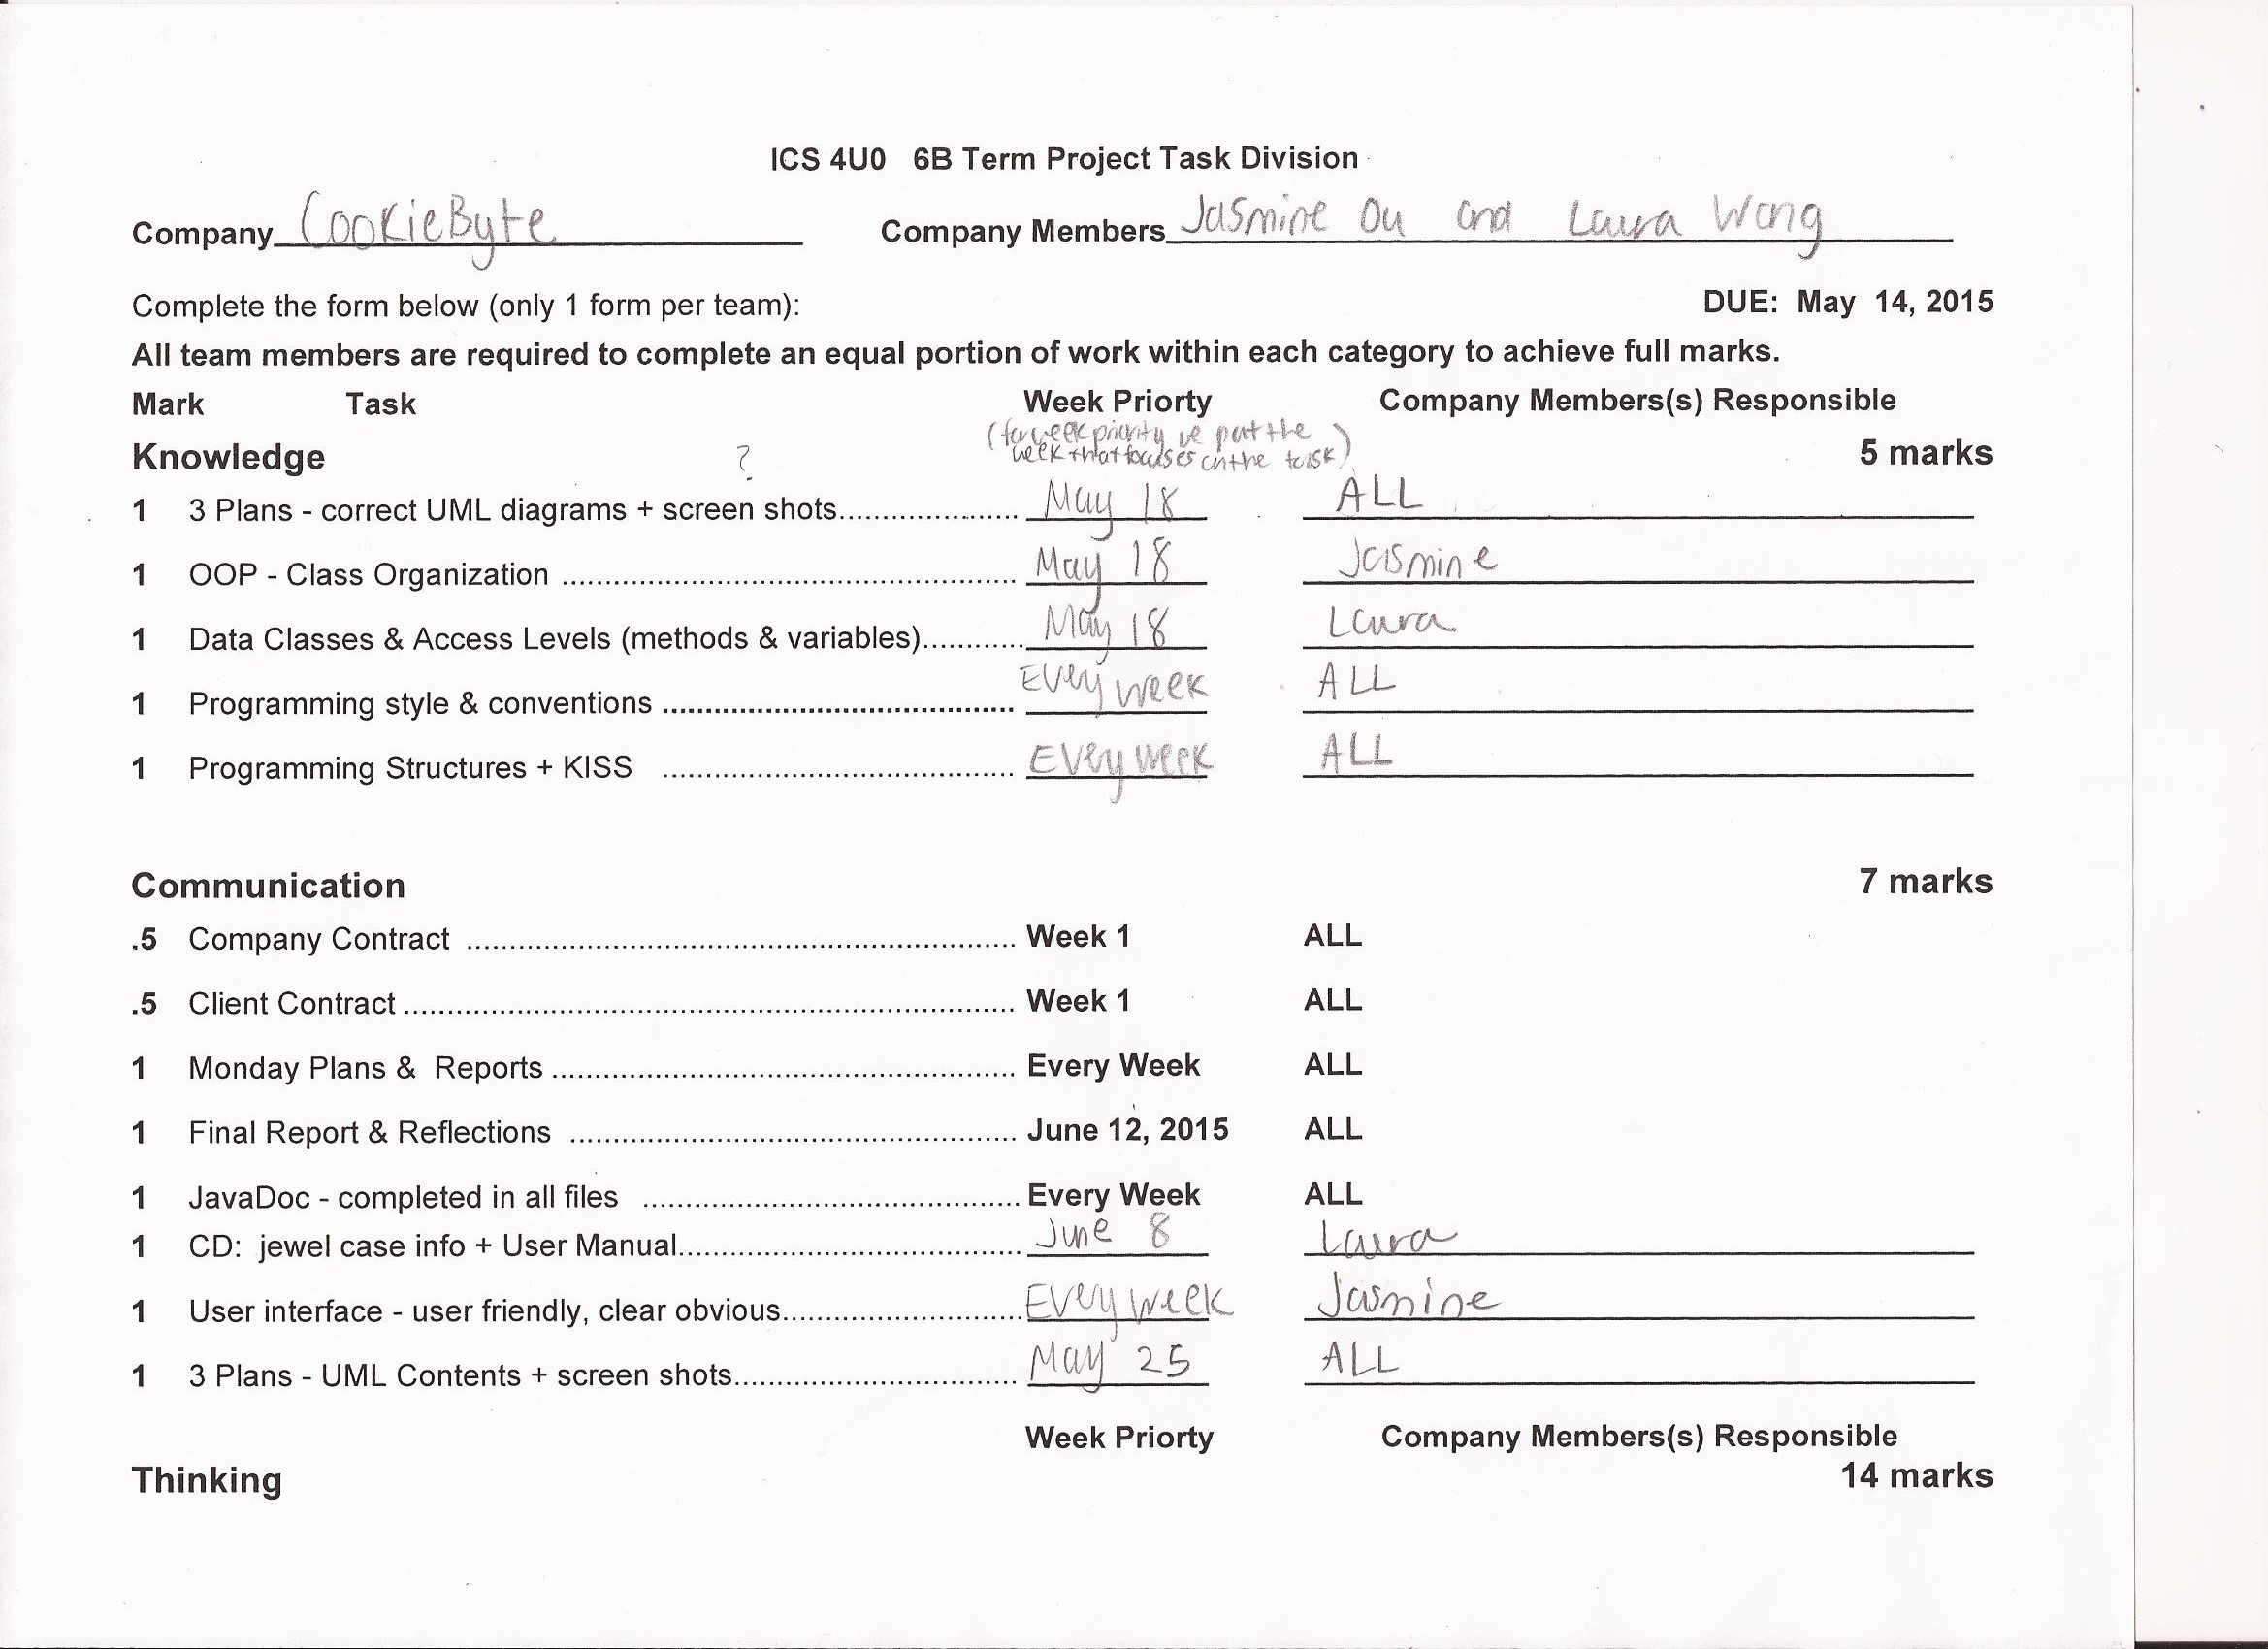 ICS 4U0 6B Term Project Task Division
Company CookieByte Company Members Jasmine Ou and Laura Wang
Complete the form below (only 1 form per team): DUE: May 14, 2015
All team members are required to complete an equal portion of work within each category to achieve full marks.
Mark Task Week Priorty Company Members(s) Responsible
(for week priority we put the
week that focuses on the task)
Knowledge ? 5 marks
1 3 Plans - correct UML diagrams + screen shots.................... May 18 ALL
1 OOP - Class Organization .................................................... May 18 Jasmine
1 Data Classes & Access Levels (methods & variables)............ May 18 Laura
1 Programming style & conventions ........................................ Every week ALL
1 Programming Structures + KISS ........................................ Every week ALL
Communication 7 marks
.5 Company Contract ............................................................... Week 1 ALL
.5 Client Contract ...................................................................... Week 1 ALL
1 Monday Plans & Reports ..................................................... Every Week ALL
1 Final Report & Reflections ................................................... June 12, 2015 ALL
1 JavaDoc - completed in all files ........................................... Every Week ALL
1 CD: jewel case info + User Manual....................................... June 8 Laura
1 User interface - user friendly, clear obvious........................... Every week Jasmine
1 3 Plans - UML Contents + screen shots................................ May 25 ALL
Week Priorty Company Members(s) Responsible
Thinking 14 marks